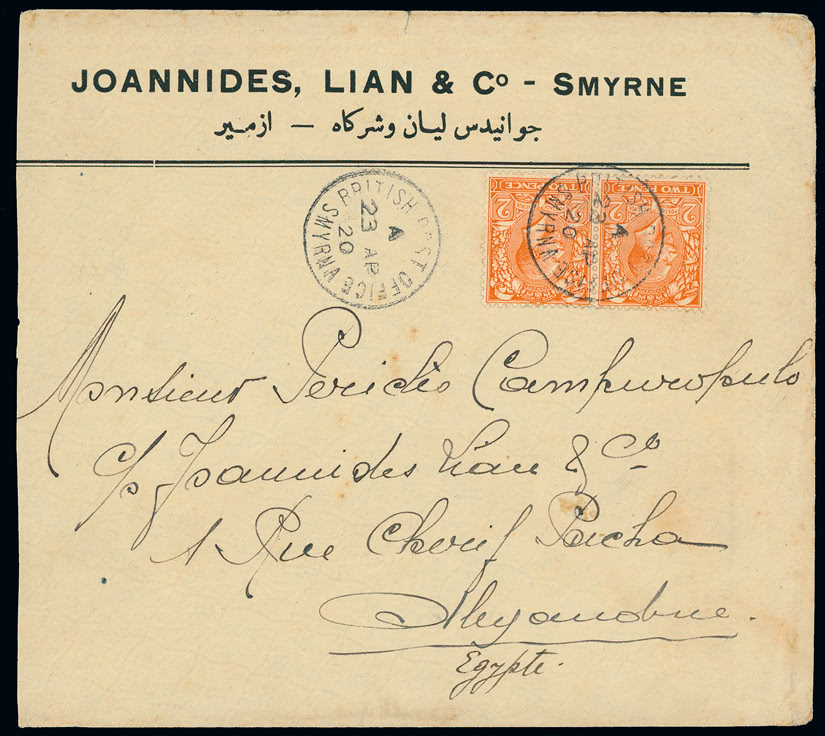 JOANNIDES, LIAN & Cº - SMYRNE
جوانیدس لیان وشرکاه — ازمیر
BRITISH POST OFFICE SMYRNA
A
23 AP
20
BRITISH POST OFFICE SMYRNA
A
23 AP
20
TWO PENCE
2 2
TWO PENCE
2 2
Monsieur Periclès Campuropulo
c/o Joannides Lian & Cº
1 Rue Cherif Pacha
Alexandrie.
Egypte.